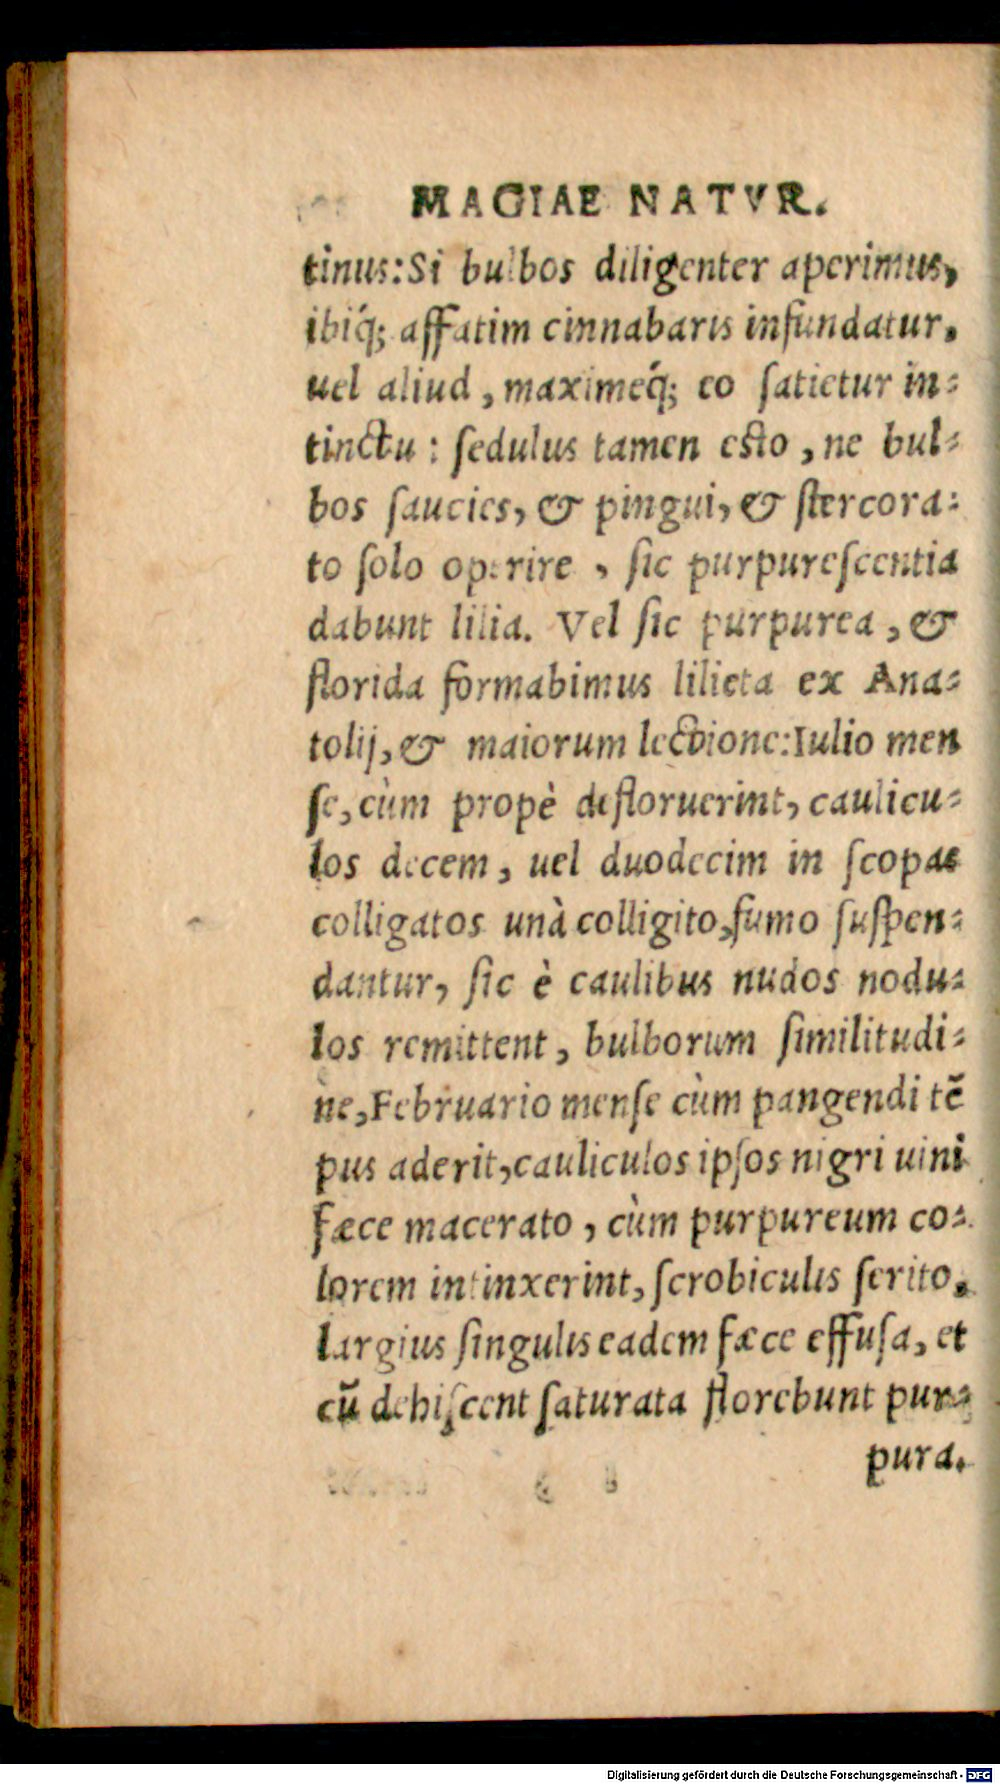 MAGIAE NATVR.
tinus: Si bulbos diligenter aperimus,
ibiq́; affatim cinnabaris infundatur,
uel aliud, maximeq́; eo ſatietur in-
tinctu: ſedulus tamen esto, ne bul-
bos ſaucies, & pingui, & ſtercora-
to ſolo operire, ſic purpureſcentia
dabunt lilia. Vel ſic purpurea, &
florida formabimus lilieta ex Ana-
tolij, & maiorum lectione: Iulio men
ſe, cùm propè defloruerint, caulicu-
los decem, uel duodecim in ſcopas
colligatos unà colligito, fumo ſuſpen-
dantur, ſic è caulibus nudos nodu-
los remittent, bulborum ſimilitudi-
ne, Februario menſe cùm pangendi tē
pus aderit, cauliculos ipſos nigri uini
fæce macerato, cùm purpureum co-
lorem intinxerint, ſcrobiculis ſerito,
largius ſingulis eadem fæce effuſa, et
cū dehiſcent ſaturata florebunt pur-
pura.
Digitalisierung gefördert durch die Deutsche Forschungsgemeinschaft - DFG